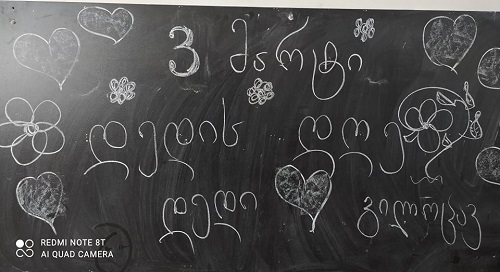 3 მარტი
დედის დღე
დედი გილოცავ
REDMI NOTE 8T
AI QUAD CAMERA